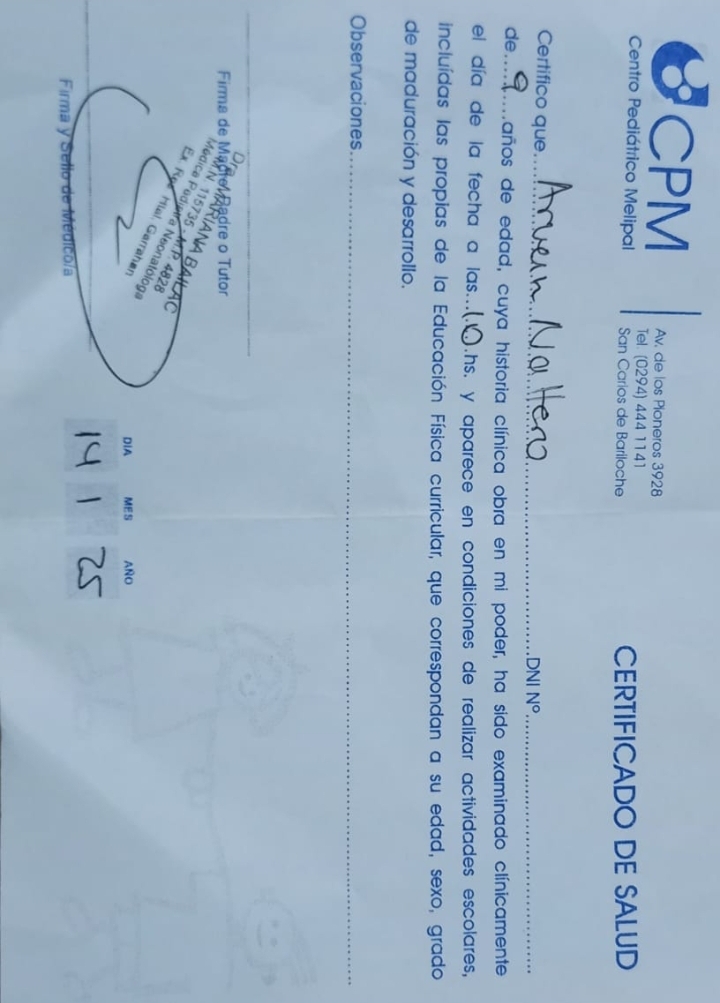 CPM
Centro Pediátrico Melipal
Av. de los Pioneros 3928
Tel. (0294) 444 1141
San Carlos de Bariloche
CERTIFICADO DE SALUD
Certifico que........................DNI Nº........................
de....9....años de edad, cuya historia clínica obra en mi poder, ha sido examinado clínicamente
el día de la fecha a las...10.hs. y aparece en condiciones de realizar actividades escolares,
incluídas las propias de la Educación Física curricular, que correspondan a su edad, sexo, grado
de maduración y desarrollo.
Observaciones........................
Firma de Madre, Padre o Tutor
Dra. MARIANA BAILAC
Ex Res.
Htal. Garrahan
Firma y Sello de Médico/a
DIA MES AÑO
14 1 25